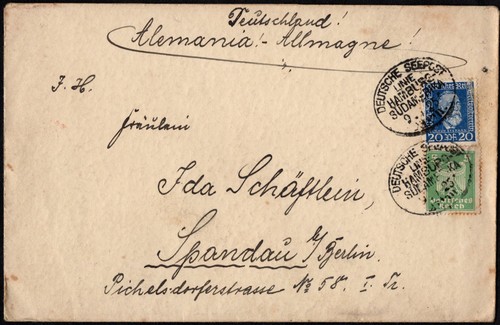 Teutschland!
Alemania! - Allmagne!
DEUTSCHE SEEPOST
LINIE
HAMBURG
SÜDAMERIKA
J. H.
20 20
Fräulein
DEUTSCHE SEEPOST
LINIE
HAMBURG
Deutsches
Reich
Ida Schäftlein,
Spandau b/Berlin.
Pichelsdorferstrasse No 58. I. Tr.